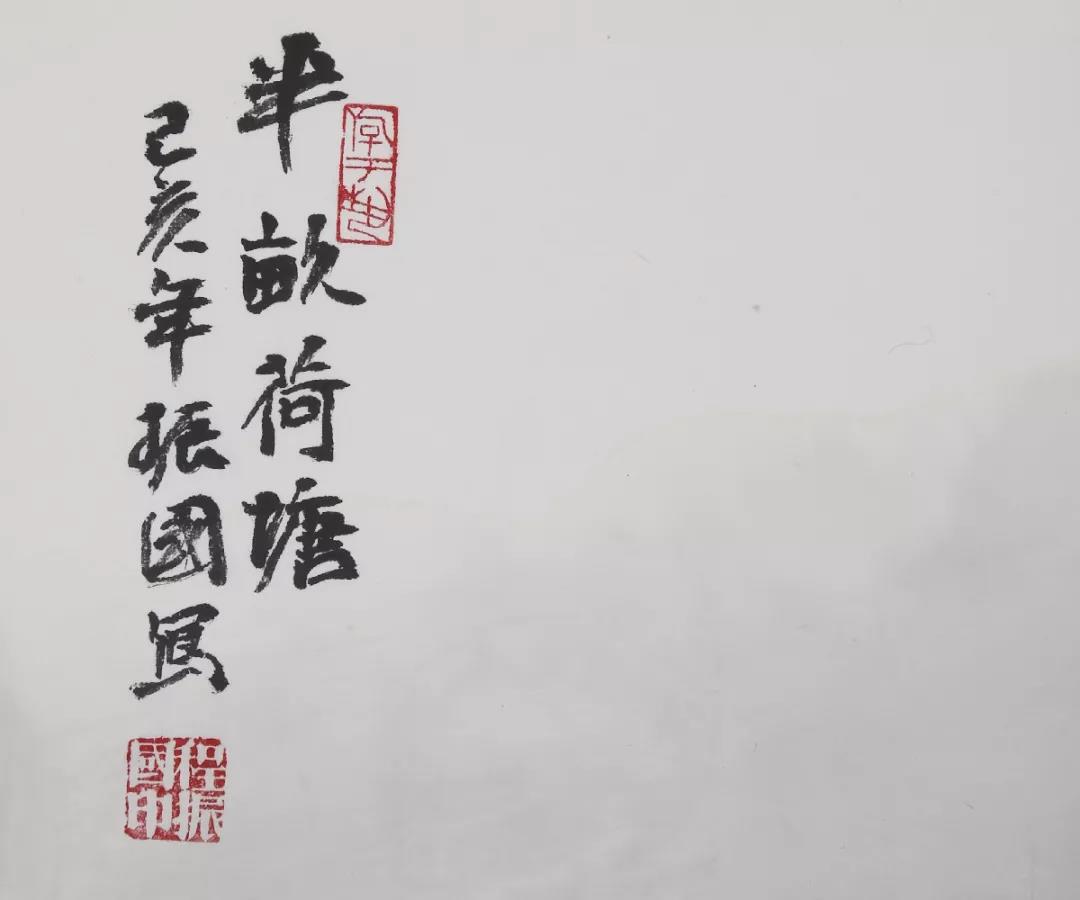 半畝荷塘
己亥年振國写
程振國印